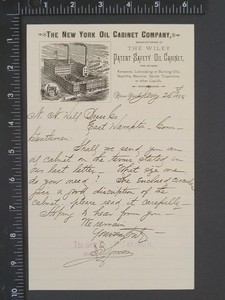 THE NEW YORK OIL CABINET COMPANY,
MANUFACTURERS OF
THE WILEY
PATENT SAFETY OIL CABINET,
FOR HOLDING
Kerosene, Lubricating or Burning Oils,
Naphtha, Benzine, Spirits Turpentine
or other Liquids.
New York, 188
N. N. Hill
East Hampton, Conn
Gentlemen
Shall we send you an
oil cabinet on the terms stated in
our last letter. What size
do you need? The enclosed
give a good description of the
cabinet, please read it carefully
Hoping to hear from you
We remain
Yours truly